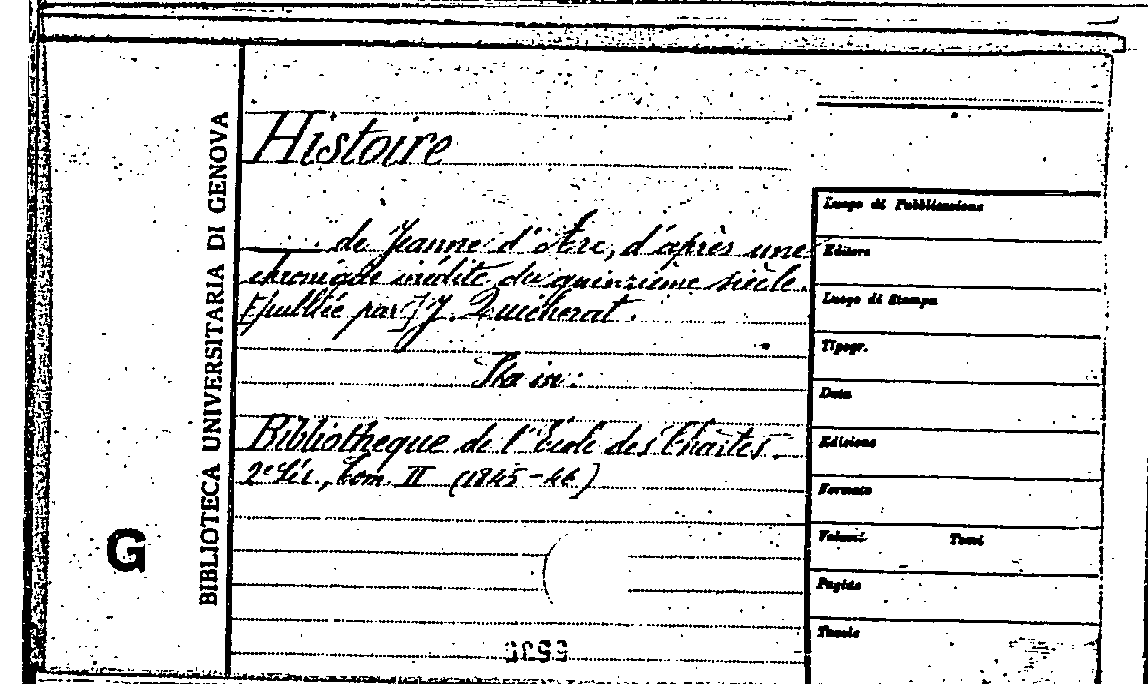 BIBLIOTECA UNIVERSITARIA DI GENOVA
G
Histoire
de Jeanne d'Arc, d'après une
chronique inédite du quinzième siècle.
[publiée par] J. Quicherat.
Sta in:
Bibliothèque de l'École des Chartes.
2e Sér., Tom. II (1845-46)
Luogo di Pubblicazione
Editore
Luogo di Stampa
Tipogr.
Data
Edizione
Formato
Volumi Tomi
Pagine
Tavole